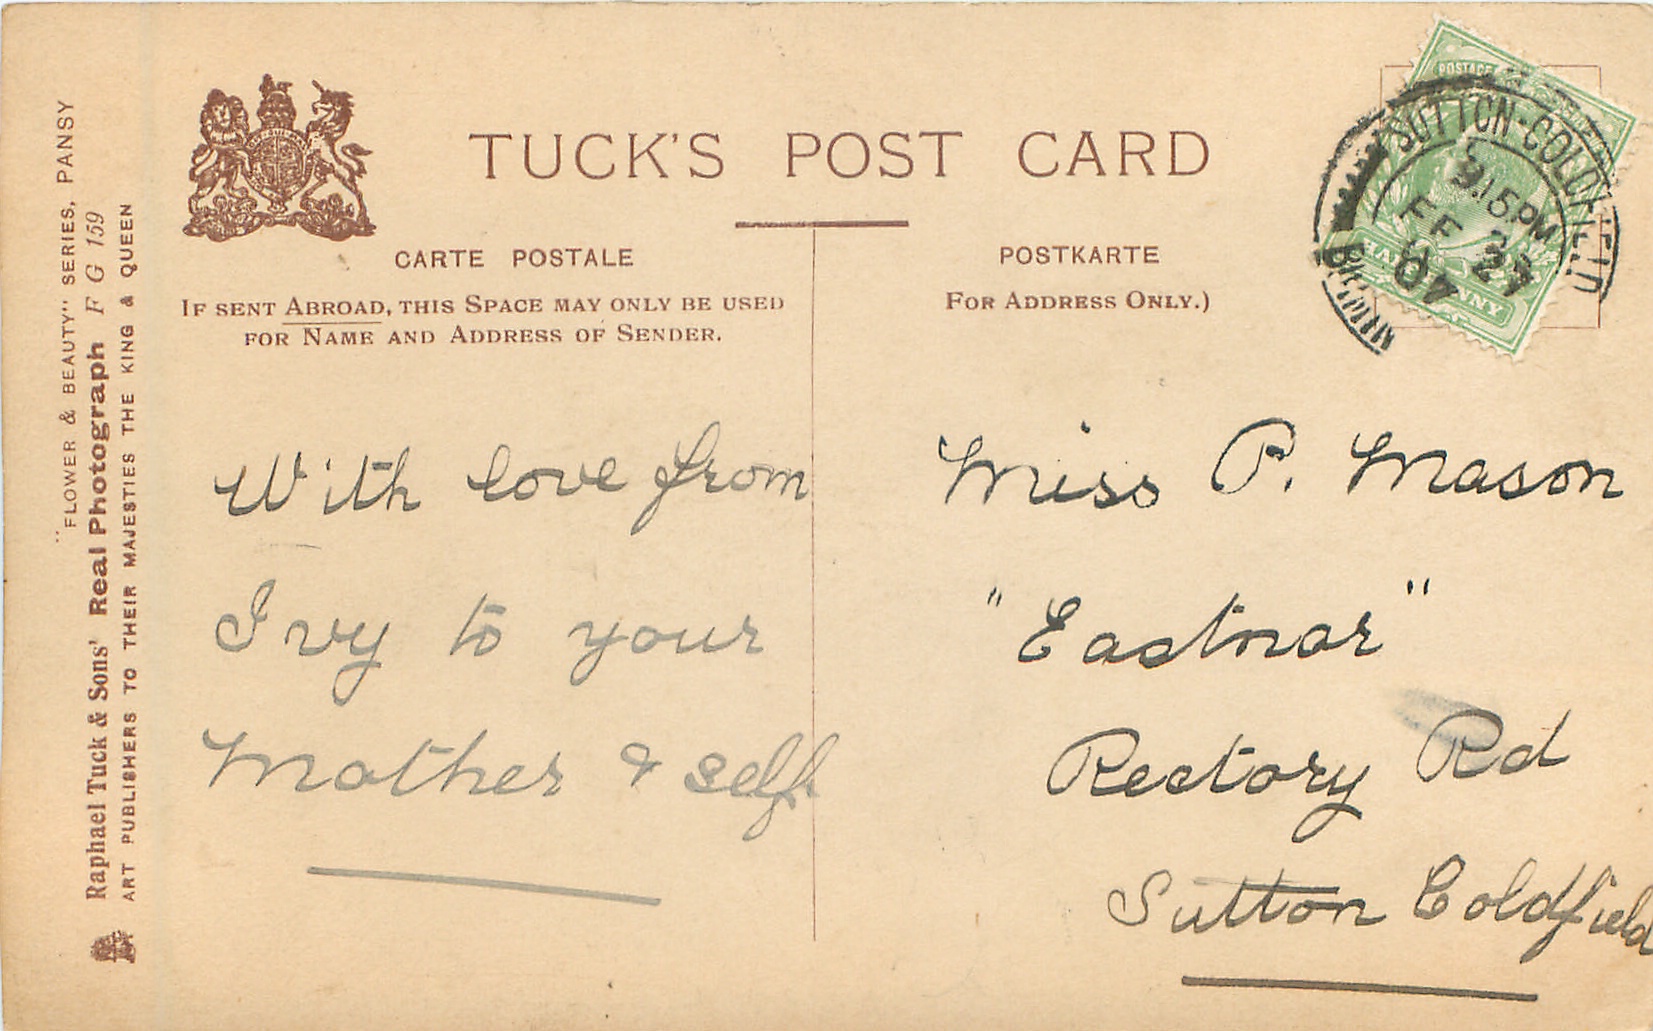 "FLOWER & BEAUTY" SERIES, PANSY
Raphael Tuck & Sons' Real Photograph F G 159
ART PUBLISHERS TO THEIR MAJESTIES THE KING & QUEEN
TUCK'S POST CARD
CARTE POSTALE
IF SENT ABROAD, THIS SPACE MAY ONLY BE USED
FOR NAME AND ADDRESS OF SENDER.
POSTKARTE
FOR ADDRESS ONLY.)
POSTAGE
SUTTON-COLDFIELD
9.15PM
FE 24
07
BIRMINGHAM
With love from
Ivy to your
Mother & self.
Miss P. Mason
"Eastnor"
Rectory Rd
Sutton Coldfield